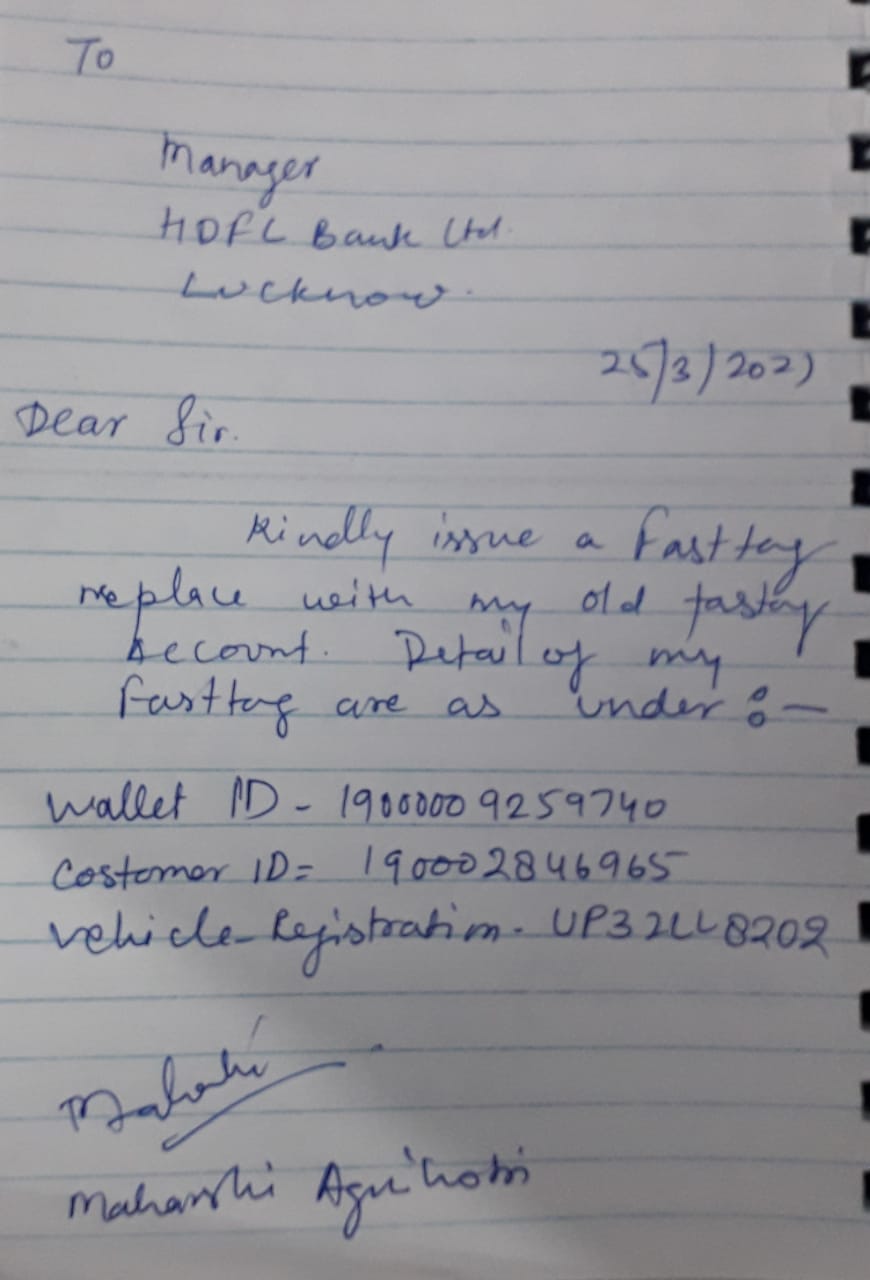 To
Manager
HDFC Bank Ltd.
Lucknow.
25/3/2021
Dear Sir.
Kindly issue a Fasttag
replace with my old fasttag
Account. Detail of my
Fasttag are as under :-
Wallet ID - 19000009259740
Costomer ID = 190002846965
Vehicle Registration - UP32LL8202
Maharshi Agnihotri